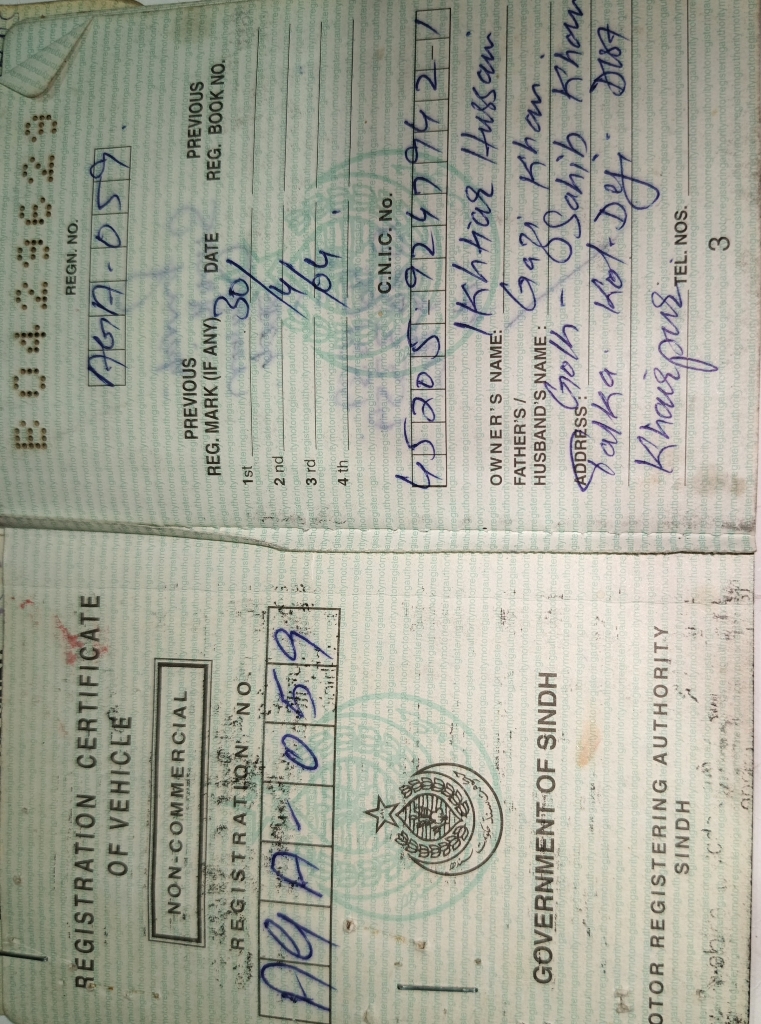 REGISTRATION CERTIFICATE
OF VEHICLE
NON-COMMERCIAL
REGISTRATION NO.
AGA-059
GOVERNMENT OF SINDH
OTOR REGISTERING AUTHORITY
SINDH
E0423629
REGN. NO.
AGA-059.
PREVIOUS
REG. MARK (IF ANY)
DATE
PREVIOUS
REG. BOOK NO.
1st 30/
2 nd /4/
3 rd /04.
4 th
C.N.I.C. No.
45205-9247942-1
OWNER'S NAME: Ikhtiar Hussain
FATHER'S /
HUSBAND'S NAME: Gazi Khan.
ADDRESS: Goth - Sahib Khan
Talka. Kot-Deji. Dist
Khairpur
TEL. NOS.
3